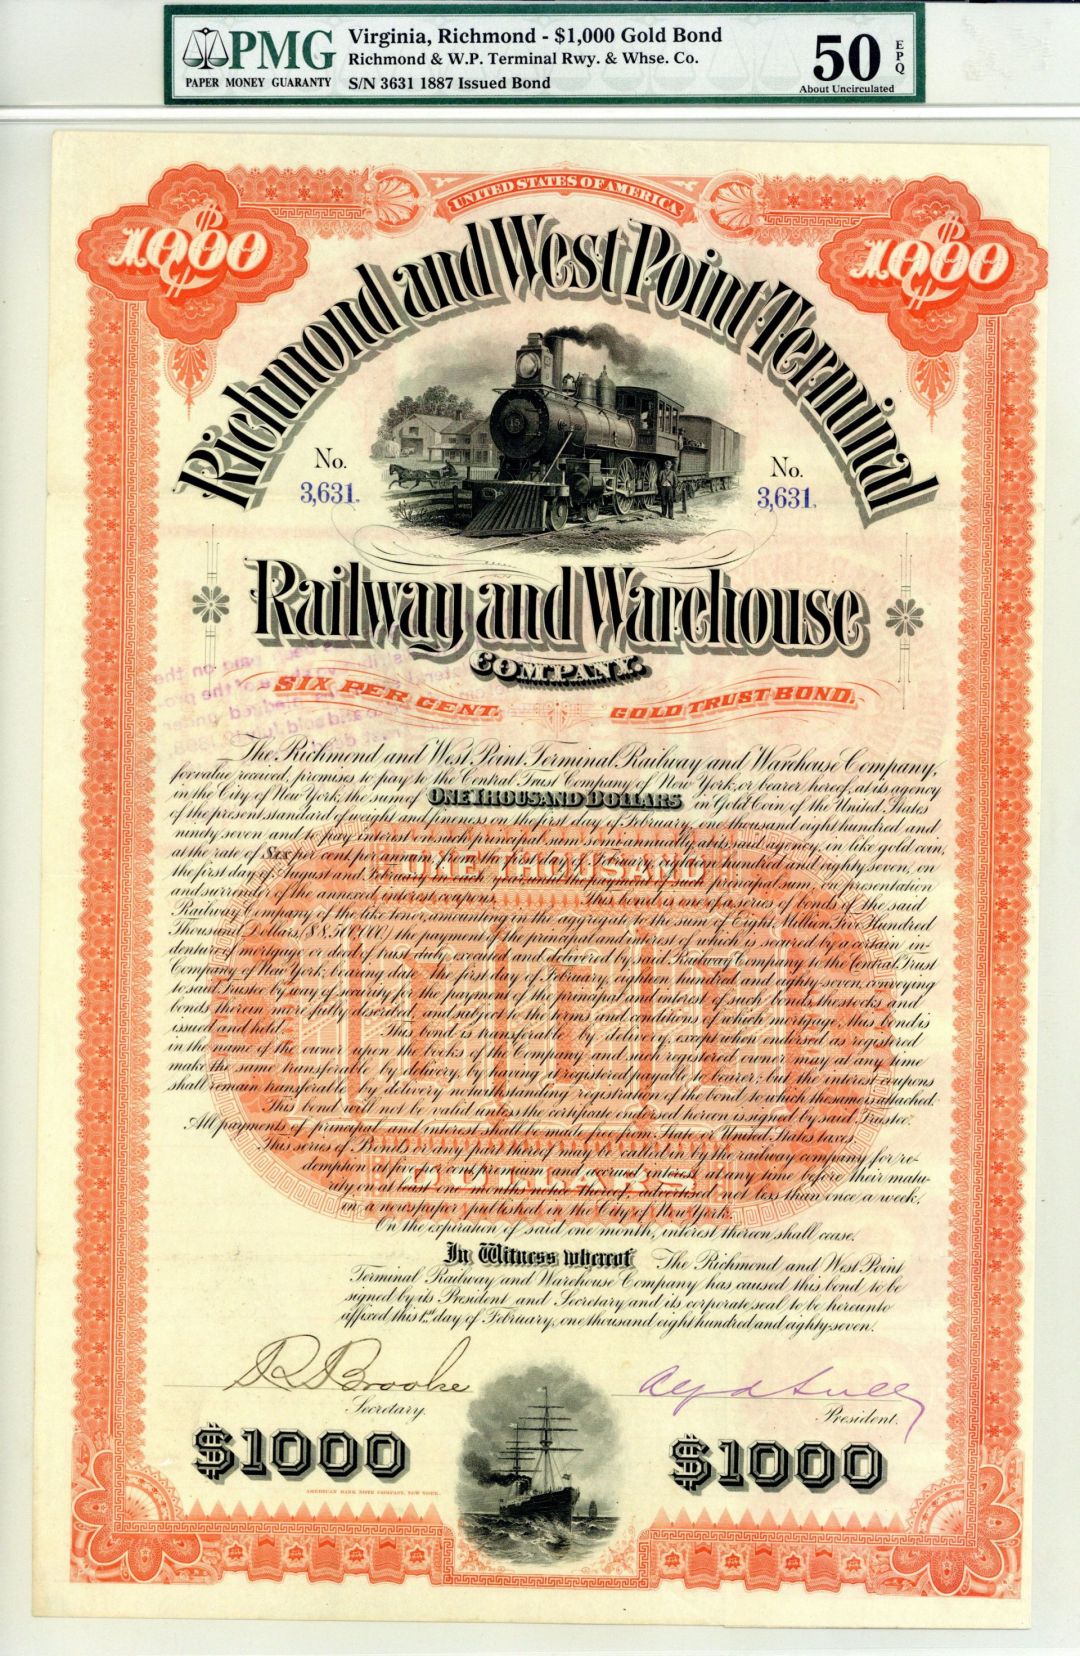 PMG
PAPER MONEY GUARANTY
Virginia, Richmond - $1,000 Gold Bond
Richmond & W.P. Terminal Rwy. & Whse. Co.
S/N 3631 1887 Issued Bond
50
EPQ
About Uncirculated
UNITED STATES OF AMERICA
$1000
$1000
Richmond and West Point Terminal
No.
3,631.
No.
3,631.
Railway and Warehouse
COMPANY.
SIX PER CENT. GOLD TRUST BOND.
The Richmond and West Point Terminal Railway and Warehouse Company,
for value received, promises to pay to the Central Trust Company of New York, or bearer hereof, at its agency
in the City of New York, the sum of ONE THOUSAND DOLLARS in Gold Coin of the United States
of the present standard of weight and fineness on the first day of February, one thousand eight hundred and
ninety seven and to pay interest on such principal sum semi-annually, at its said agency, in like gold coin,
at the rate of Six per cent. per annum, from the first day of February, eighteen hundred and eighty seven, on
the first day of August and February in each year, until the payment of such principal sum, on presentation
and surrender of the annexed interest coupons. This bond is one of a series of bonds of the said
Railway Company of the like tenor, amounting in the aggregate to the sum of Eight Million Five Hundred
Thousand Dollars, ($8,500,000) the payment of the principal and interest of which is secured by a certain in-
denture of mortgage or deed of trust duly executed and delivered by said Railway Company to the Central Trust
Company of New York, bearing date the first day of February, eighteen hundred and eighty-seven, conveying
to said Trustee by way of security for the payment of the principal and interest of such bonds, the stocks and
bonds therein more fully described, and subject to the terms and conditions of which mortgage, this bond is
issued and held. This bond is transferable by delivery, except when endorsed as registered
in the name of the owner upon the books of the Company and such registered owner may at any time
make the same transferable by delivery, by having it registered payable to bearer; but the interest coupons
shall remain transferable by delivery notwithstanding registration of the bond to which the same is attached.
This bond will not be valid unless the certificate endorsed hereon is signed by said Trustee.
All payments of principal and interest shall be made free from State or United States taxes.
This series of Bonds or any part thereof may be called in by the railway company for re-
demption at five per cent premium and accrued interest at any time before their matu-
rity on at least one months notice thereof, advertised not less than once a week,
in a newspaper published in the City of New York.
On the expiration of said one month, interest thereon shall cease.
In Witness whereof The Richmond and West Point
Terminal Railway and Warehouse Company has caused this bond to be
signed by its President and Secretary and its corporate seal to be hereunto
affixed this 1st day of February, one thousand eight hundred and eighty seven.
ONE THOUSAND
DOLLARS
R Brooke
Secretary.
President.
$1000
$1000
AMERICAN BANK NOTE COMPANY, NEW YORK.